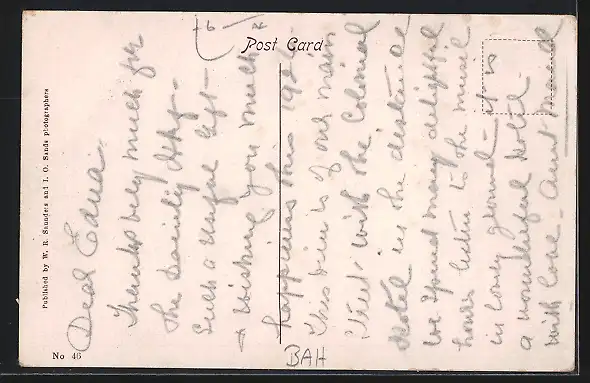 Post Card
Published by W. R. Saunders and J. O. Sands photographers
No 46
BAH
Dear Edna.
Thanks very much for
the dainty
Such a useful Gift -
+ wishing you much
happiness this 192
This view is of our main
Street with the Colonial
Hotel in the distance
we spend many delightful
hours listen to the music
in lovely ground - it is
a wonderful Hotel -
with love - Aunt